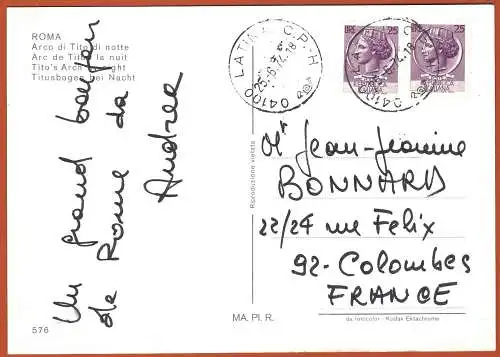 ROMA
Arco di Tito di notte
Arc de Titus la nuit
Tito's Arch by night
Titusbogen bei Nacht
Un grand bonjour
de Rome da
Andrea
576
Riproduzione vietata
MA. PI. R.
04100 LATINA C.P.-H
25
25
Jean-Jeanine
BONNARD
22/24 rue Felix
92-Colombes
FRANCE
da fotocolor - Kodak Ektachrome